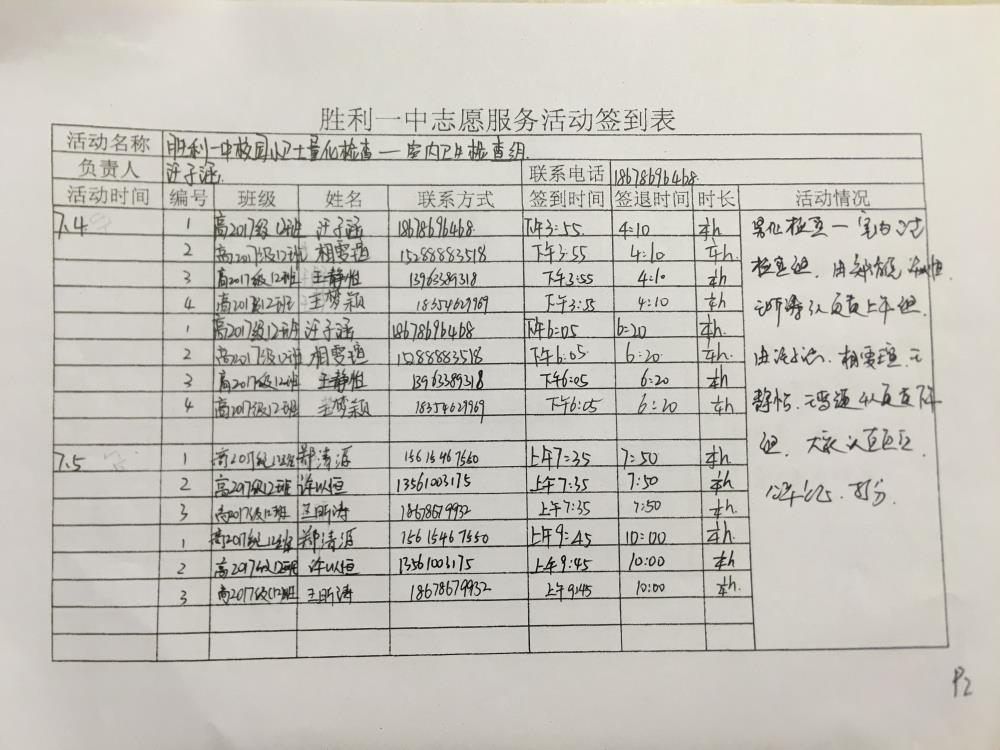 胜利一中志愿服务活动签到表
活动名称 胜利一中校园卫士量化检查—室内卫生检查组.
负责人 许子涵. 联系电话 18678696468.
活动时间 编号 班级 姓名 联系方式 签到时间 签退时间 时长 活动情况
7.4 1 高2017级12班 许子涵 18678696468 下午3:55 4:10 h
2 高2017级12班 相雯瑄 15288883518 下午3:55 4:10 h.
3 高2017级12班 王静怡 13963389318 下午3:55 4:10 h
4 高2017级12班 王梦颖 18354629969 下午3:55 4:10 h
1 高2017级12班 许子涵 18678696468 下午6:05 6:20 h.
2 高2017级12班 相雯瑄 15288883518 下午6:05 6:20 h.
3 高2017级12班 王静怡 13963389318 下午6:05 6:20 h
4 高2017级12班 王梦颖 18354629969 下午6:05 6:20 h
7.5 1 高2017级12班 郑清源 15615467550 上午7:35 7:50 h
2 高2017级12班 许以恒 13561003175 上午7:35 7:50 h
3 高2017级12班 王昕涛 18678679932 上午7:35 7:50 h
1 高2017级12班 郑清源 15615467550 上午9:45 10:00 h
2 高2017级12班 许以恒 13561003175 上午9:45 10:00 h
3 高2017级12班 王昕涛 18678679932 上午9:45 10:00 h.
量化检查—室内卫生
检查组. 由
负责上午组.
由许子涵、相雯瑄、王
静怡、 4人负责下午
组. 大家认真
P2